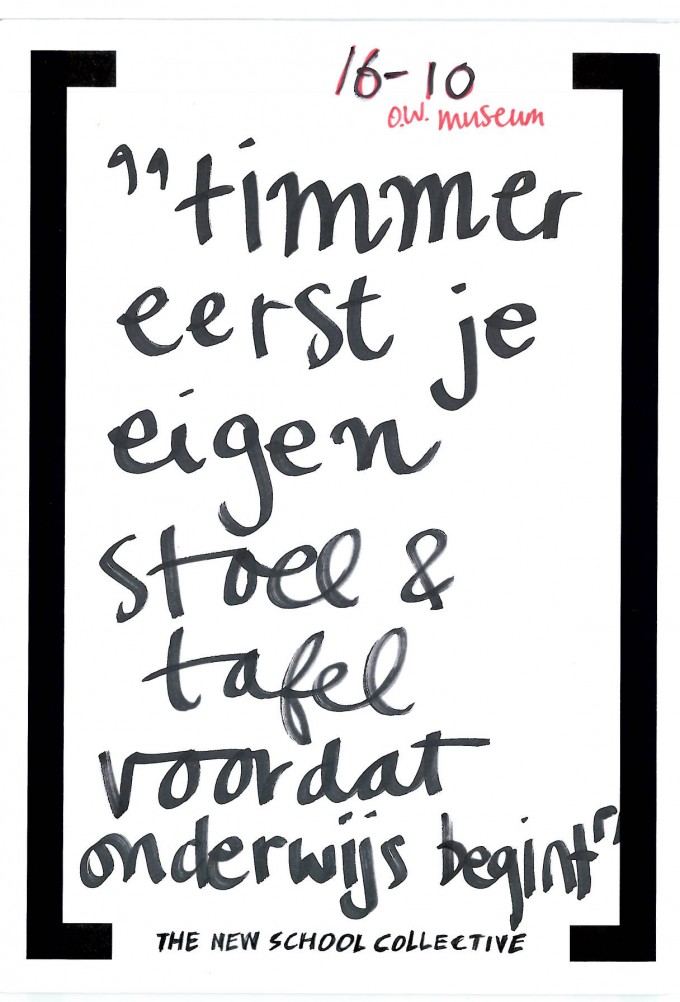 16-10
O.W. museum
"timmer
eerst je
eigen
stoel &
tafel
voordat
onderwijs begint"
THE NEW SCHOOL COLLECTIVE